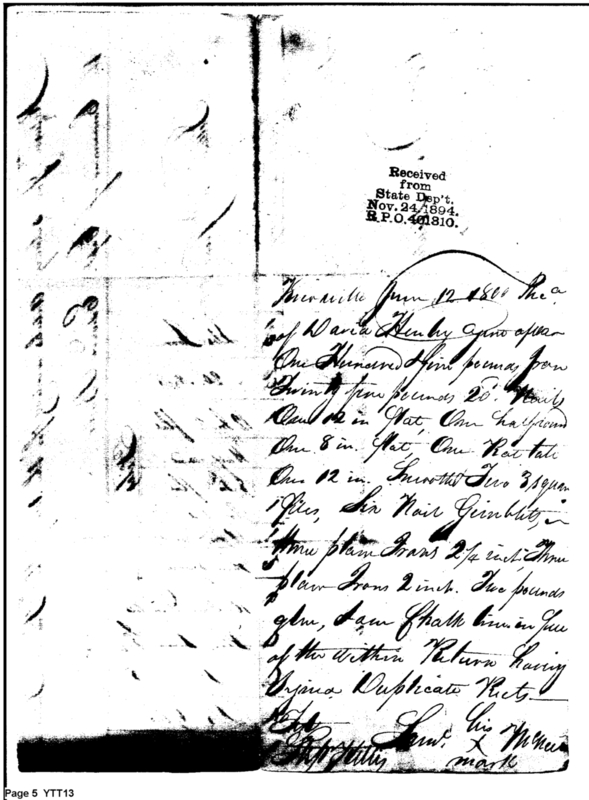 Received
from
State Dep't.
Nov. 24, 1894.
R.P.O. 401810.
June 12 1800 Rec'd
of David Henley agent of War
One Hundred & five pounds Iron
Twenty five pounds 20d. Nails
One 12 in flat, One half round
One 8 in. flat, One Rat tail
One 12 in. Smooth Two 3 square
files, Six Nail Gimblets,
three plain Irons 2/4 inch Three
plain Irons 2 inch. Two pounds
glue, & one Chalk line in full
of the within Return having
Signed Duplicate Rects.
his
Saml. x
mark
Page 5 YTT13